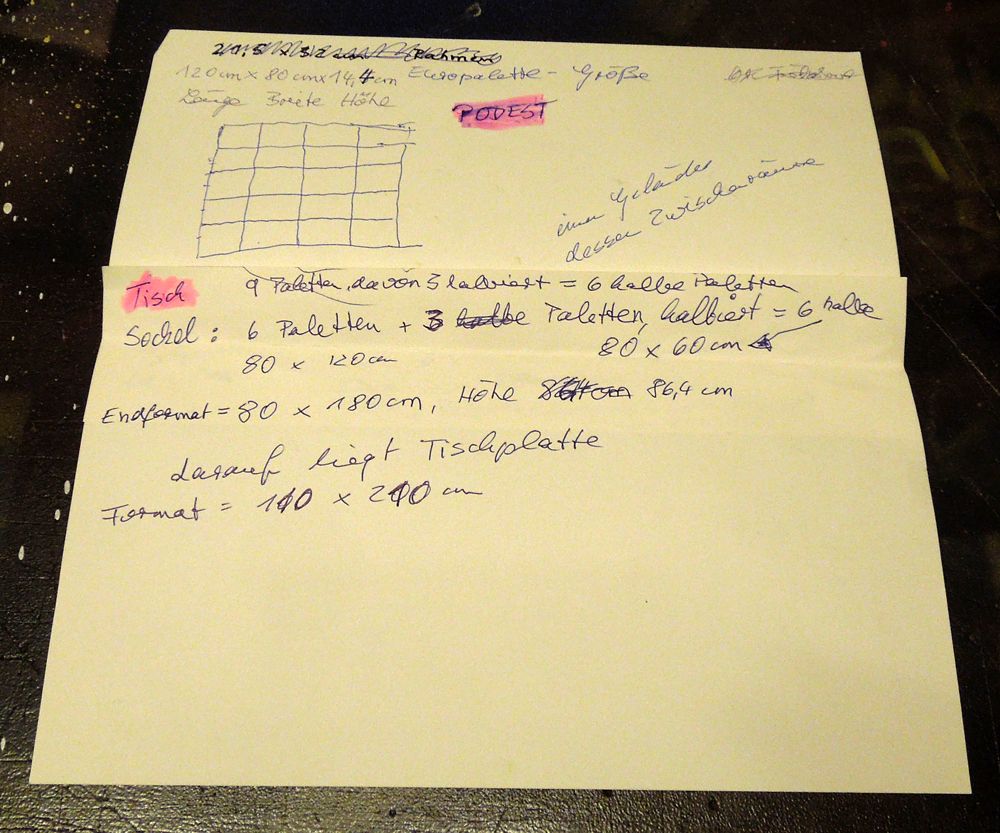 120cm x 80cm x 14,4cm Europalette - Größe
Länge Breite Höhe
PODEST
einer Geländer
dessen Zwischenräume
Tisch
9 Paletten, davon 3 halbiert = 6 halbe Paletten
Sockel: 6 Paletten + 3 halbe Paletten, halbiert = 6 halbe
80 x 120cm
80 x 60cm
Endformat = 80 x 180cm, Höhe 86,4 cm
darauf liegt Tischplatte
Format = 110 x 210 cm